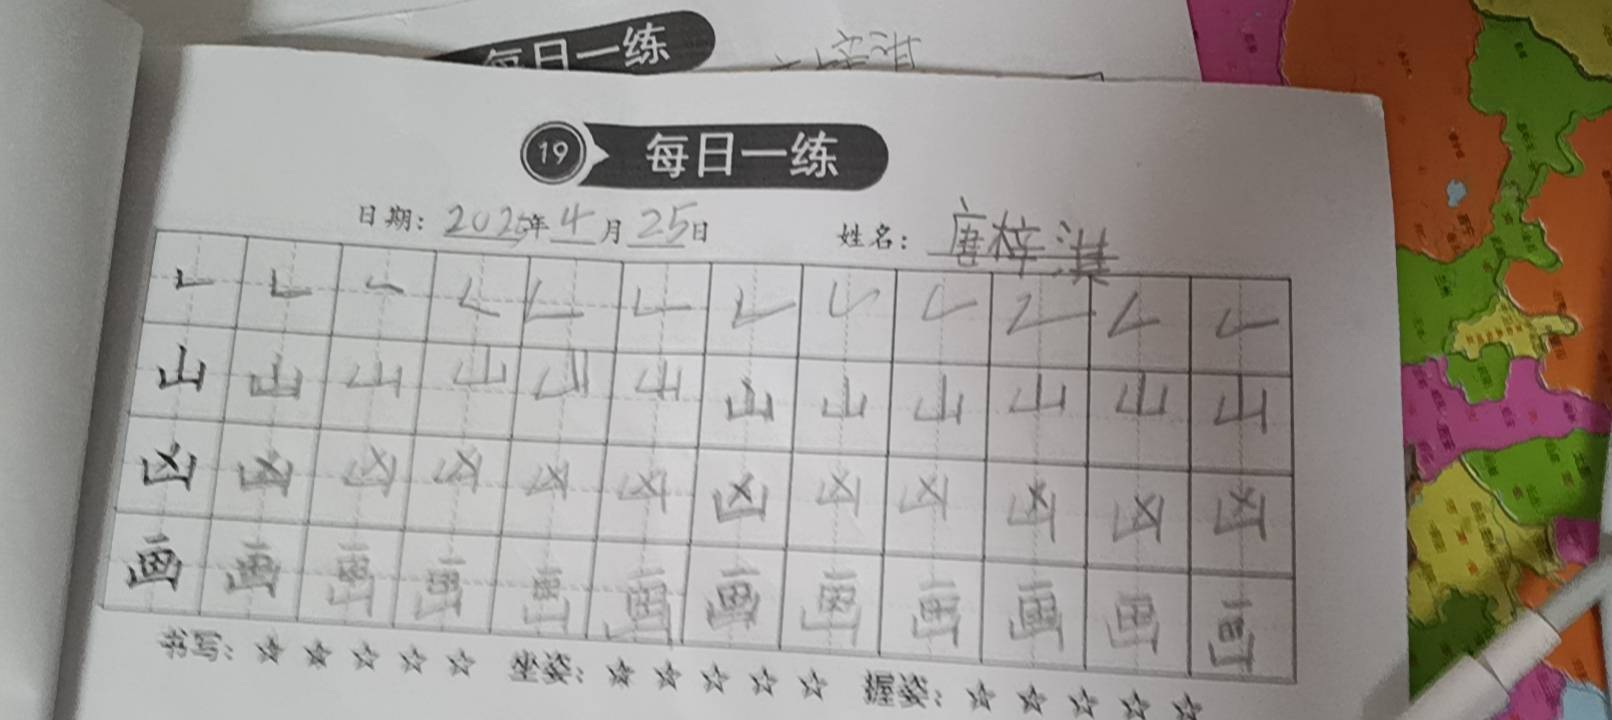 每日一练
19 每日一练
日期：2025年4月25日 姓名：唐梓淇
𠃊 𠃊 𠃊 𠃊 𠃊 𠃊 𠃊 𠃊 𠃊 𠃊 𠃊 𠃊
山 山 山 山 山 山 山 山 山 山 山 山
凶 凶 凶 凶 凶 凶 凶 凶 凶 凶 凶 凶
画 画 画 画 画 画 画 画 画 画 画 画
书写：☆ ☆ ☆ ☆ ☆ 坐姿：☆ ☆ ☆ ☆ ☆ 握姿：☆ ☆ ☆ ☆ ☆